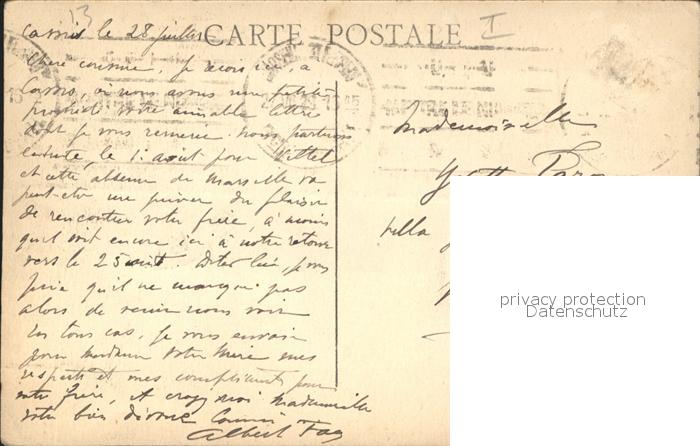 Cassis le 28 juillet
CARTE POSTALE
I
13
Chère cousine, je reçois ici, à
Cassis, où nous avons une petite
propriété votre aimable lettre
dont je vous remercie. Nous partirons
ensuite, le 1er août pour Vittel
et cette absence de Marseille va
peut-être me priver du plaisir
de rencontrer votre frère, à moins
qu'il soit encore ici à notre retour
vers le 25 août. Dites lui, je vous
prie qu'il ne manque pas
alors de venir nous voir
En tous cas, je vous envoie
pour Madame votre Mère mes
respects et mes compliments pour
votre frère, et croyez moi Mademoiselle
votre bien dévoué Cousin
Albert
Mademoiselle
villa
privacy protection
Datenschutz